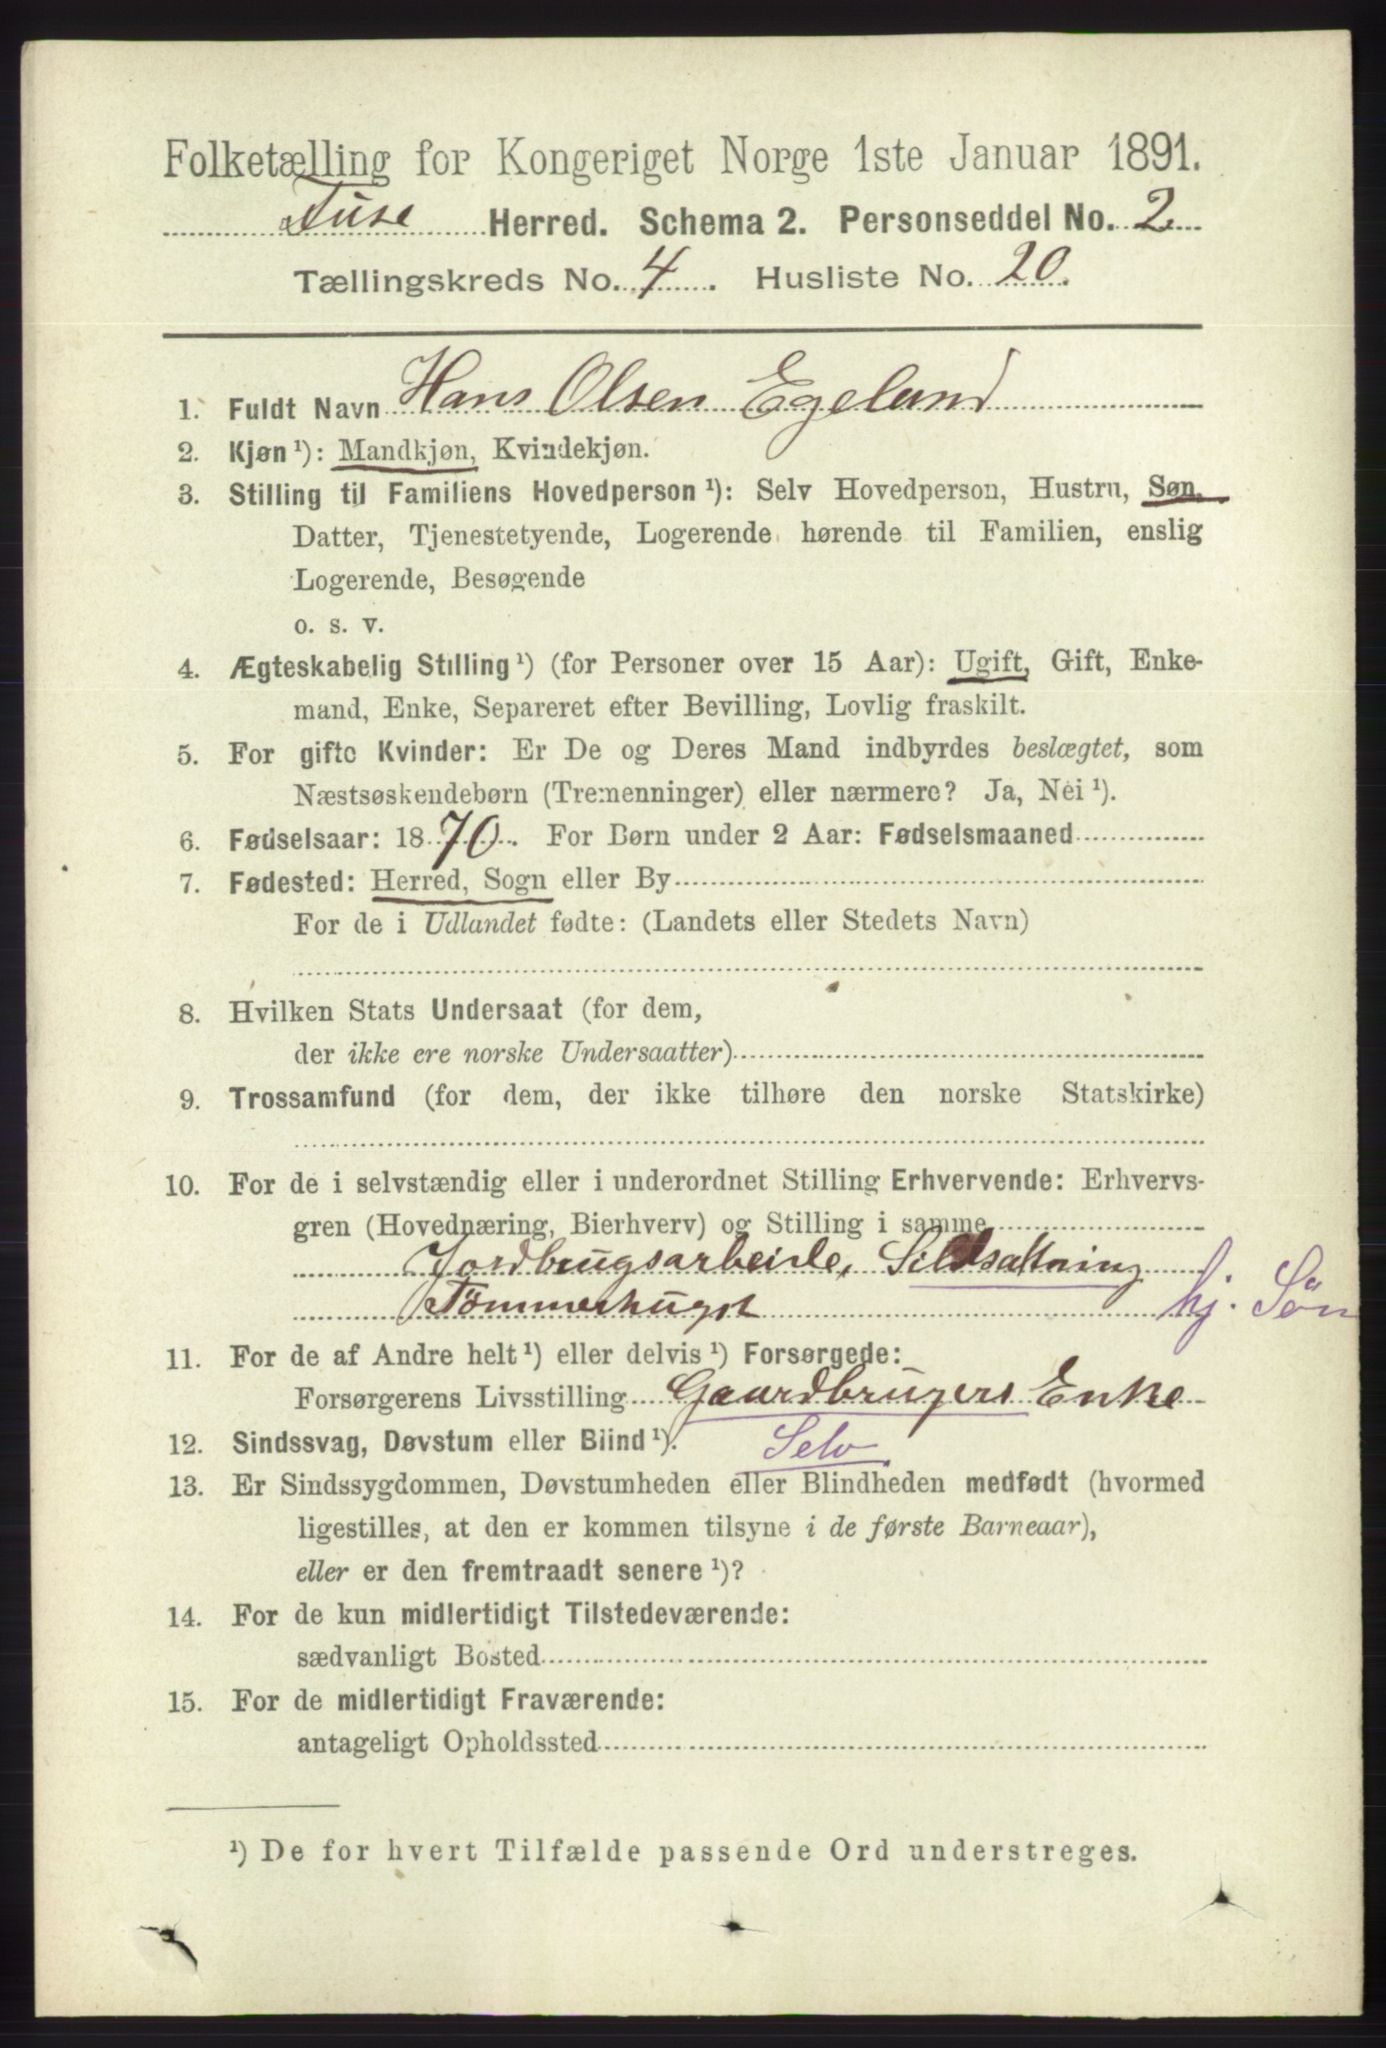 Folketælling for Kongeriget Norge 1ste Januar 1891.
Fuse Herred. Schema 2. Personseddel No. 2
Tællingskreds No. 4. Husliste No. 20.
1. Fuldt Navn Hans Olsen Egeland
2. Kjøn ¹): Mandkjøn, Kvindekjøn.
3. Stilling til Familiens Hovedperson ¹): Selv Hovedperson, Hustru, Søn,
Datter, Tjenestetyende, Logerende hørende til Familien, enslig
Logerende, Besøgende
o. s. v.
4. Ægteskabelig Stilling ¹) (for Personer over 15 Aar): Ugift, Gift, Enke-
mand, Enke, Separeret efter Bevilling, Lovlig fraskilt.
5. For gifte Kvinder: Er De og Deres Mand indbyrdes beslægtet, som
Næstsøskendebørn (Tremenninger) eller nærmere? Ja, Nei ¹).
6. Fødselsaar: 1870. For Børn under 2 Aar: Fødselsmaaned
7. Fødested: Herred, Sogn eller By
For de i Udlandet fødte: (Landets eller Stedets Navn)
8. Hvilken Stats Undersaat (for dem,
der ikke ere norske Undersaatter)
9. Trossamfund (for dem, der ikke tilhøre den norske Statskirke)
10. For de i selvstændig eller i underordnet Stilling Erhvervende: Erhvervs-
gren (Hovednæring, Bierhverv) og Stilling i samme
Jordbrugsarbeide, Sildsaltning
Tömmerhugst hj. Sön
11. For de af Andre helt ¹) eller delvis ¹) Forsørgede:
Forsørgerens Livsstilling Gaardbrugers Enke
12. Sindssvag, Døvstum eller Blind ¹). Selv
13. Er Sindssygdommen, Døvstumheden eller Blindheden medfødt (hvormed
ligestilles, at den er kommen tilsyne i de første Barneaar),
eller er den fremtraadt senere ¹)?
14. For de kun midlertidigt Tilstedeværende:
sædvanligt Bosted
15. For de midlertidigt Fraværende:
antageligt Opholdssted
¹) De for hvert Tilfælde passende Ord understreges.